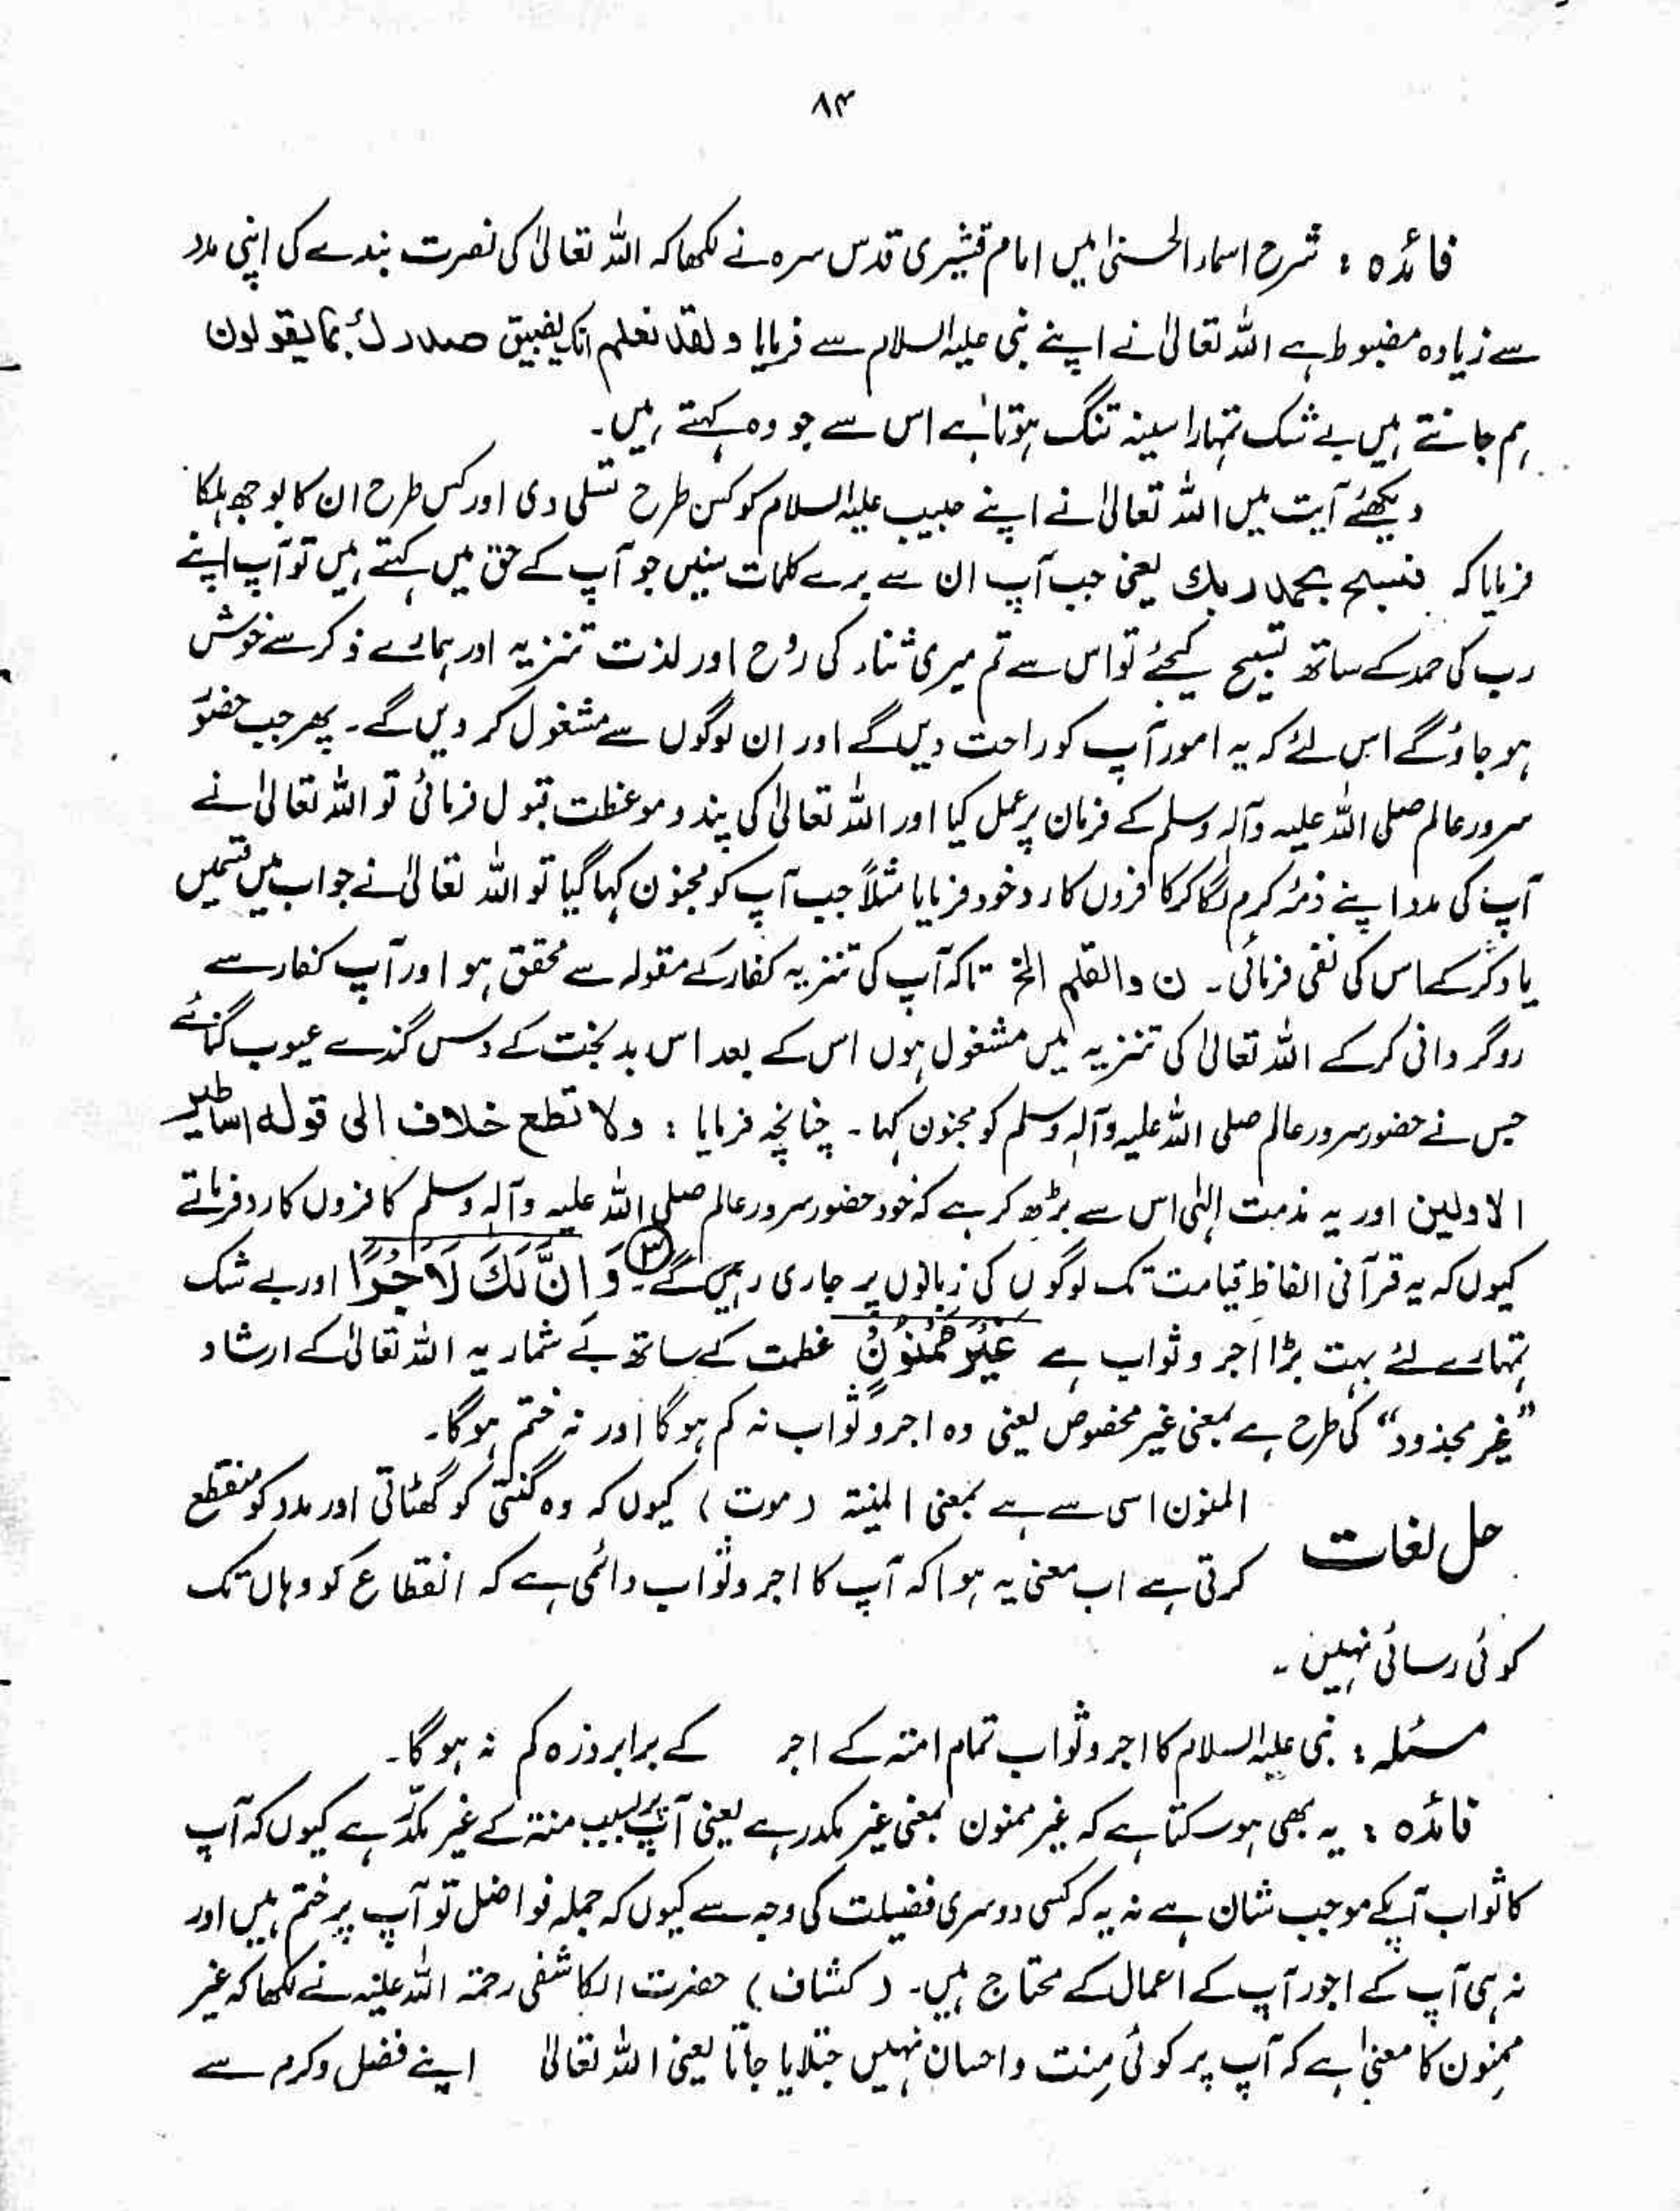 ۸۴
فائدہ : شرح اسماء الحسنیٰ میں امام قشیری قدس سرہ نے لکھا کہ اللہ تعالیٰ کی نصرت بندے کی اپنی مدد
سے زیادہ مضبوط ہے اللہ تعالیٰ نے اپنے نبی علیہ السلام سے فرمایا ولقد نعلم انک یضیق صدرک بما یقولون
ہم جانتے ہیں بے شک تمہارا سینہ تنگ ہوتا ہے اس سے جو وہ کہتے ہیں۔
دیکھئے آیت میں اللہ تعالیٰ نے اپنے حبیب علیہ السلام کو کس طرح تسلی دی اور کس طرح ان کا بوجھ ہلکا
فرمایا کہ فسبح بحمد ربك یعنی جب آپ ان سے برے کلمات سنیں جو آپ کے حق میں کہتے ہیں تو آپ اپنے
رب کی حمد کے ساتھ تسبیح کیجئے تو اس سے تم میری ثناء کی رُوح اور لذت تنزیہ اور ہمارے ذکر سے خوش
ہو جاؤ گے اس لئے کہ یہ امور آپ کو راحت دیں گے اور ان لوگوں سے مشغول کر دیں گے۔ پھر جب حضور
سرور عالم صلی اللہ علیہ وآلہ وسلم کے فرمان پر عمل کیا اور اللہ تعالیٰ کی پند و موعظت قبول فرمائی تو اللہ تعالیٰ نے
آپ کی مدد اپنے ذمۂ کرم لگا کر کافروں کا رد خود فرمایا مثلاً جب آپ کو مجنون کہا گیا تو اللہ تعالیٰ نے جواب میں قسمیں
یاد کر کے اس کی نفی فرمائی۔ ن والقلم الخ تاکہ آپ کی تنزیہ کفار کے مقولہ سے محقق ہو اور آپ کفار سے
روگردانی کر کے اللہ تعالیٰ کی تنزیہ میں مشغول ہوں اس کے بعد اس بدبخت کے دس گندے عیوب گنائے
جس نے حضور سرور عالم صلی اللہ علیہ وآلہ وسلم کو مجنون کہا۔ چنانچہ فرمایا : ولا تطع خلاف الی قوله اساطیر
الاولین اور یہ مذمت الٰہی اس سے بڑھ کر ہے کہ خود حضور سرور عالم صلی اللہ علیہ وآلہ وسلم کافروں کا رد فرماتے
کیوں کہ یہ قرآنی الفاظ قیامت تک لوگوں کی زبانوں پر جاری رہیں گے۔ ③ وَاِنَّ لَكَ لَاَجْرًا اور بے شک
تمہارے لئے بہت بڑا اجر و ثواب ہے غَیْرَ مَمْنُوْنٍ عظمت کے ساتھ بے شمار یہ اللہ تعالیٰ کے ارشاد
”غیر مجذوذ“ کی طرح ہے بمعنی غیر مخصوص یعنی وہ اجر و ثواب نہ کم ہوگا اور نہ ختم ہوگا۔
حل لغات المنون اسی سے ہے بمعنی المنیتہ (موت) کیوں کہ وہ گنتی کو گھٹاتی اور مدد کو منقطع
کرتی ہے اب معنیٰ یہ ہوا کہ آپ کا اجر و ثواب دائمی ہے کہ انقطاع کو وہاں تک
کوئی رسائی نہیں۔
مسئلہ : نبی علیہ السلام کا اجر و ثواب تمام امتہ کے اجر کے برابر ذرہ کم نہ ہوگا۔
فائدہ : یہ بھی ہو سکتا ہے کہ غیر ممنون بمعنی غیر مکدر ہے یعنی آپ پر بسبب منتہ کے غیر مکدّر ہے کیوں کہ آپ
کا ثواب آپکے موجب شان ہے نہ یہ کہ کسی دوسری فضیلت کی وجہ سے کیوں کہ جملہ فواضل تو آپ پر ختم ہیں اور
نہ ہی آپ کے اجور آپ کے اعمال کے محتاج ہیں۔ (کشاف) حضرت الکاشفی رحمتہ اللہ علیہ نے لکھا کہ غیر
ممنون کا معنیٰ ہے کہ آپ پر کوئی مِنت و احسان نہیں جتلایا جاتا یعنی اللہ تعالیٰ اپنے فضل و کرم سے